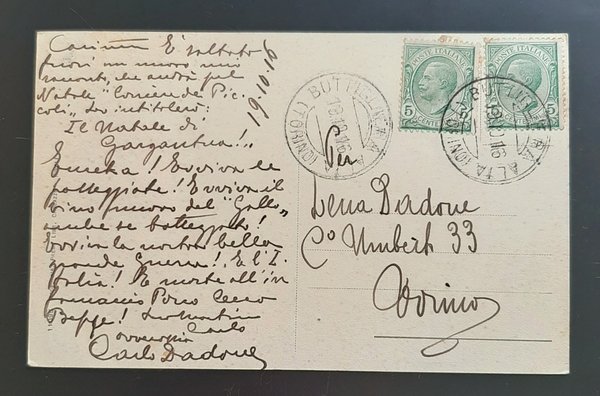 Carissima È saltato
fuori un nuovo mio
racconto, che andrà pel
Natale "Corriere dei Pic-
coli", Lo intitolerò:
Il Natale di
Gargantua!..
Eureka! Evviva le
patteggiate! Evviva il
vino nuovo del "Gallo"
anche se battezzato!
Evviva la nostra bella
grande Guerra! E l'I-
talia! E morte all'in-
fame Cecco
Beppe!
Carlo
ovverossia
Carlo Dadone
19.10.16
POSTE ITALIANE
5 CENT. 5
POSTE ITALIANE
5 CENT.
BUTTIGLIERA ALTA (TORINO)
19.10.16
BUTTIGLIERA ALTA (TORINO)
19.10.16
Per
Lena Dadone
Co Umberto 33
Torino